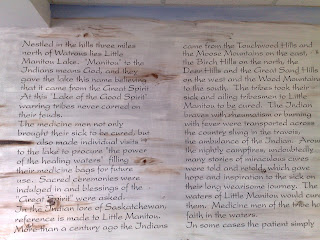 Nestled in the hills three miles
north of Watrous lies Little
Manitou Lake. "Manitou" to the
Indians means God, and they
gave the lake this name believing
that it came from the Great Spirit.
At this "Lake of the Good Spirit"
warring tribes never carried on
their feuds.
The medicine men not only
brought their sick to be cured, but
also made individual visits
to the lake to procure "the power
of the healing waters" filling
their medicine bags for future
use. Sacred ceremonies were
indulged in and blessings of the
"Great Spirit" were asked.
In the Indian lore of Saskatchewan,
reference is made to Little Manitou.
More than a century ago the Indians
came from the Touchwood Hills and
the Moose Mountains on the east,
the Birch Hills on the north, the
Deer Hills and the Great Sand Hills
on the west and the Wood Mountains
to the south. The tribes took their
sick and ailing tribesmen to Little
Manitou to be cured. The Indian
braves with rheumatism or burning
with fever were transported across
the country slung in the travois,
the ambulance of the Indian.
the nightly campfires, undoubtedly
many stories of miraculous cures
were told and retold, which gave
hope and inspiration to the sick on
their long wearisome journey. The
waters of Little Manitou would cure
them. Medicine men of the
faith in the waters.
In some cases the patient simply